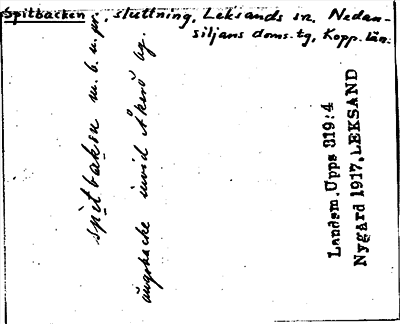 Spitbacken, sluttning, Leksands sn. Nedan-
siljans doms.tg, Kopp. län.
spitbakɛn m. b. u. pr.
ängsbacke invid Åkerö by.
Landsm. Upps 319:4
Nygård 1917. LEKSAND